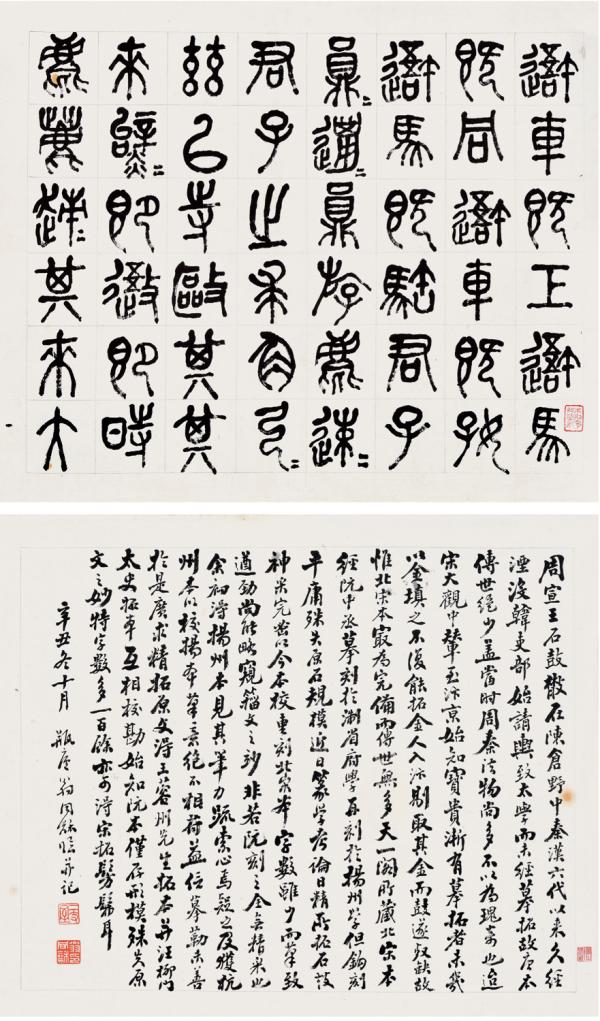 䢒車既工䢒馬
既同䢒車既好
䢒馬既𩣡君子
員=邋=員斿麀速=
君子之求角弓=
茲以寺敺其其
來即時
麀趚=其來大
周宣王石鼓散在陳倉野中秦漢六代以來久經
湮沒韓吏部始請輿致太學而未經摹拓故唐本
傳世絕少蓋當時周秦法物尚多不以為瑰奇也迨
宋大觀中輦至汴京始知寶貴漸有摹拓者未幾
以金填之不復能拓金人入汴剔取其金而鼓遂殘缺故
惟北宋本最為完備而傳世無多天一閣所藏北宋本
經阮中丞摹刻於浙省府學再刻於揚州學但鉤刻
平庸殊失原石規模近日篆學考論日精所拓石鼓
神采完出以今本校重刻北宋本字數雖少而筆致
遒勁尚能略窺籀文之妙非若阮刻之全無精采也
余初得揚州本見其筆力疏索心焉疑之及獲杭
州本以校揚本筆意絕不相符益信摹勒未善
於是廣求精拓原文得王蓉州先生拓本并汪柳門
太史拓本互相校勘始知阮本僅存形模殊失原
文之妙特字數多一百餘亦可得宋拓髣髴耳
辛丑冬十月 瓶庵翁同龢臨并記